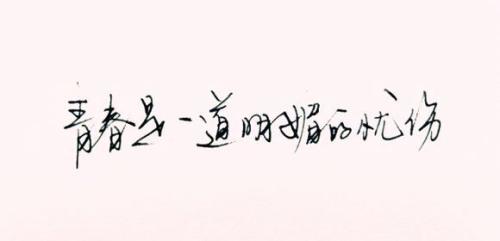 青春是一道明媚的忧伤